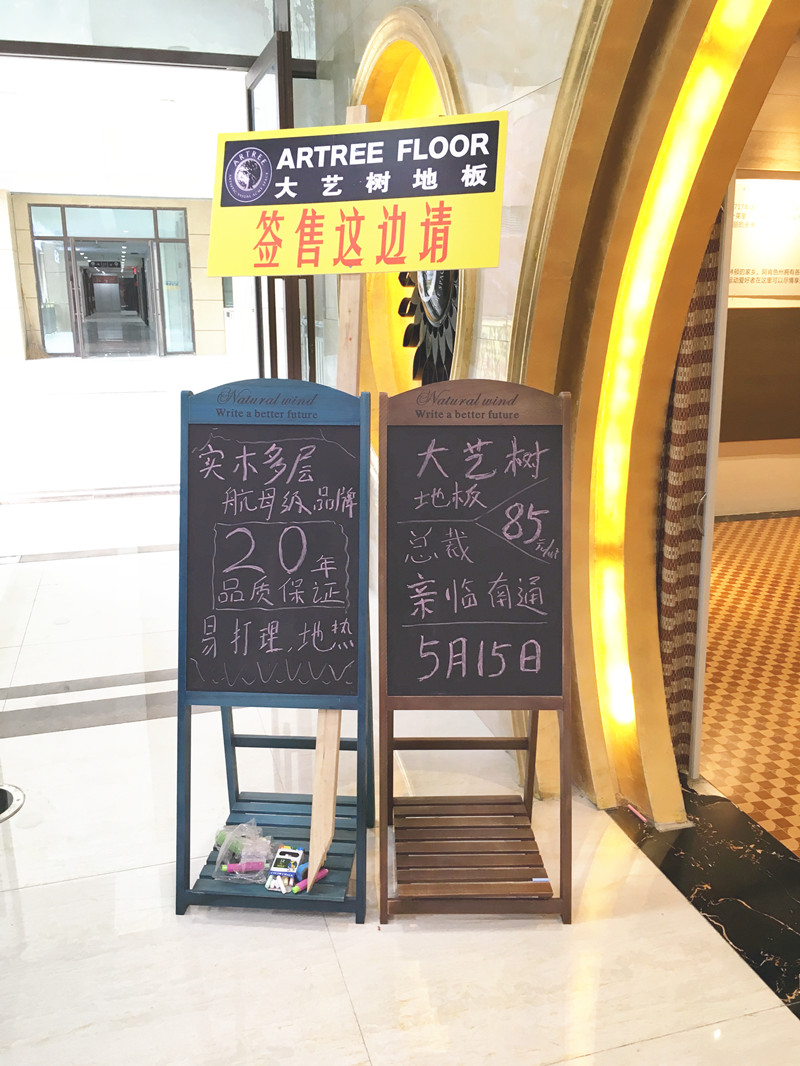 ARTREE
ARTREE FLOOR
大艺树地板
签售这边请
Natural wind
Write a better future
实木多层
航母级品牌
20年
品质保证
易打理、地热
Natural wind
Write a better future
大艺树
地板
85元/m²
总裁
亲临南通
5月15日